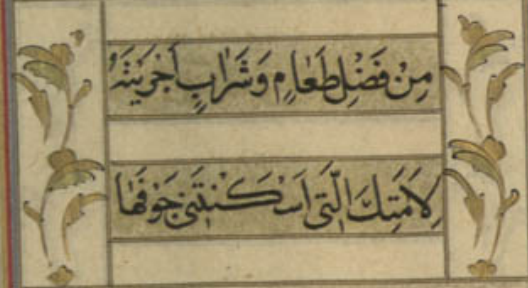 مِنْ فَضْلِ طَعَامٍ وَشَرَابٍ اَجْرَيْتَهُ
لِاَمَتِكَ الَّتِى اَسْكَنْتَنِى جَوْفَهَا